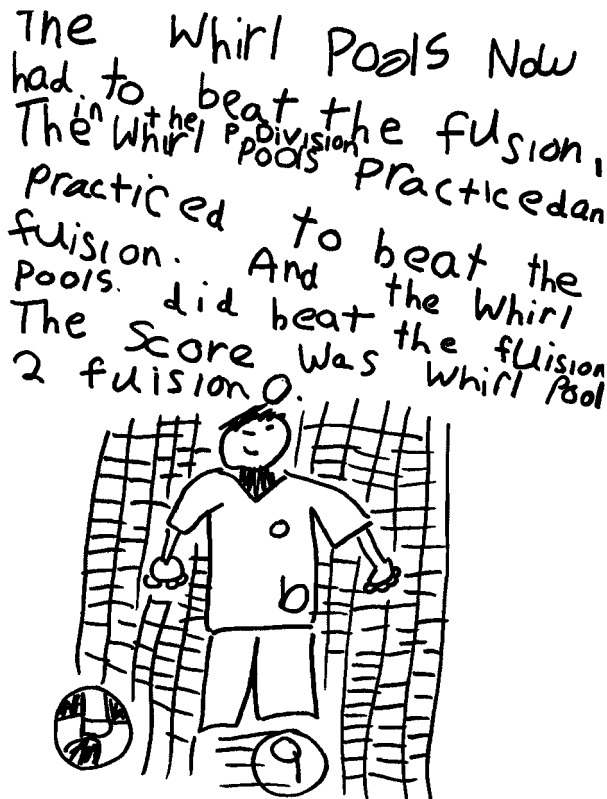 The Whirl Pools Now
had to beat the fusion,
in the P. Division
The Whirl Pools Practicedan
Practiced to beat the
fuision. And the Whirl
Pools. did beat the fuision
The Score was Whirl Pool
2 fuision 0.
b
9